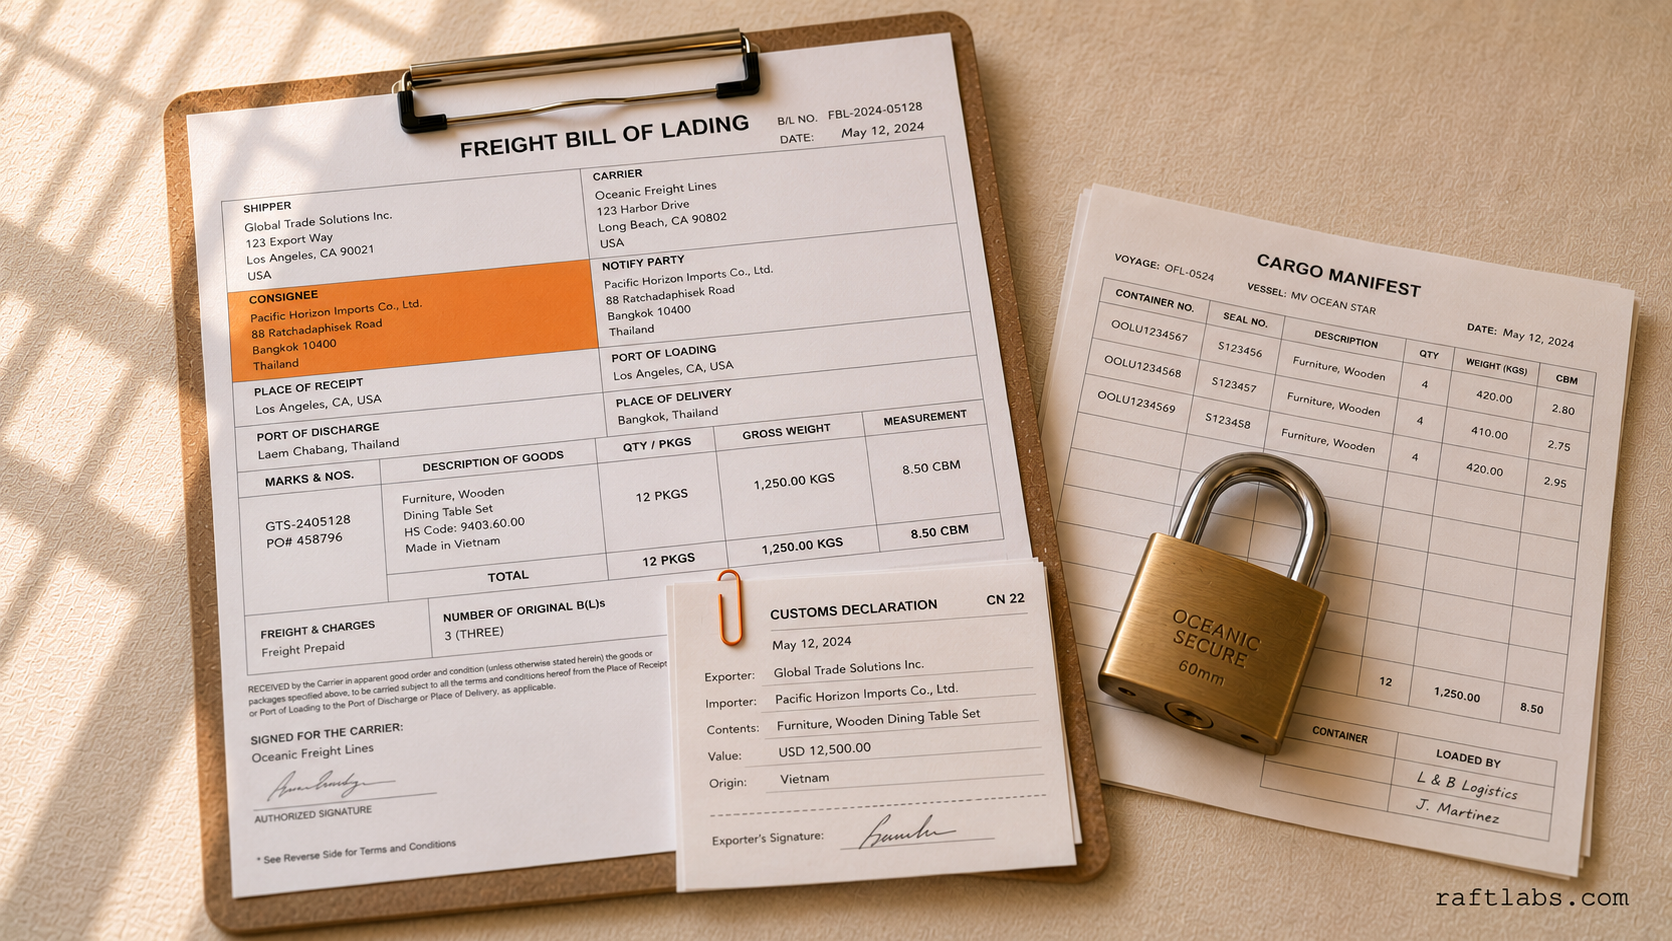 FREIGHT BILL OF LADING
B/L NO. FBL-2024-05128
DATE: May 12, 2024
SHIPPER
Global Trade Solutions Inc.
123 Export Way
Los Angeles, CA 90021
USA
CARRIER
Oceanic Freight Lines
123 Harbor Drive
Long Beach, CA 90802
USA
CONSIGNEE
Pacific Horizon Imports Co., Ltd.
88 Ratchadaphisek Road
Bangkok 10400
Thailand
NOTIFY PARTY
Pacific Horizon Imports Co., Ltd.
88 Ratchadaphisek Road
Bangkok 10400
Thailand
PLACE OF RECEIPT
Los Angeles, CA, USA
PORT OF LOADING
Los Angeles, CA, USA
PORT OF DISCHARGE
Laem Chabang, Thailand
PLACE OF DELIVERY
Bangkok, Thailand
MARKS & NOS. DESCRIPTION OF GOODS QTY / PKGS GROSS WEIGHT MEASUREMENT
GTS-2405128
PO# 458796
Furniture, Wooden
Dining Table Set
HS Code: 9403.60.00
Made in Vietnam
12 PKGS 1,250.00 KGS 8.50 CBM
TOTAL 12 PKGS 1,250.00 KGS 8.50 CBM
FREIGHT & CHARGES
Freight Prepaid
NUMBER OF ORIGINAL B(L)s
3 (THREE)
RECEIVED by the Carrier in apparent good order and condition (unless otherwise stated herein) the goods or
packages specified above, to be carried subject to all the terms and conditions hereof from the Place of Receipt
or Port of Loading to the Port of Discharge or Place of Delivery, as applicable.
SIGNED FOR THE CARRIER:
Oceanic Freight Lines
AUTHORIZED SIGNATURE
* See Reverse Side for Terms and Conditions
CUSTOMS DECLARATION CN 22
May 12, 2024
Exporter: Global Trade Solutions Inc.
Importer: Pacific Horizon Imports Co., Ltd.
Contents: Furniture, Wooden Dining Table Set
Value: USD 12,500.00
Origin: Vietnam
Exporter's Signature:
CARGO MANIFEST
VOYAGE: OFL-0524 VESSEL: MV OCEAN STAR DATE: May 12, 2024
CONTAINER NO. SEAL NO. DESCRIPTION QTY WEIGHT (KGS) CBM
OOLU1234567 S123456 Furniture, Wooden 4 420.00 2.80
OOLU1234568 S123457 Furniture, Wooden 4 410.00 2.75
OOLU1234569 S123458 Furniture, Wooden 4 420.00 2.95
12 1,250.00 8.50
CONTAINER LOADED BY
L & B Logistics
J. Martinez
OCEANIC
SECURE
60mm
raftlabs.com